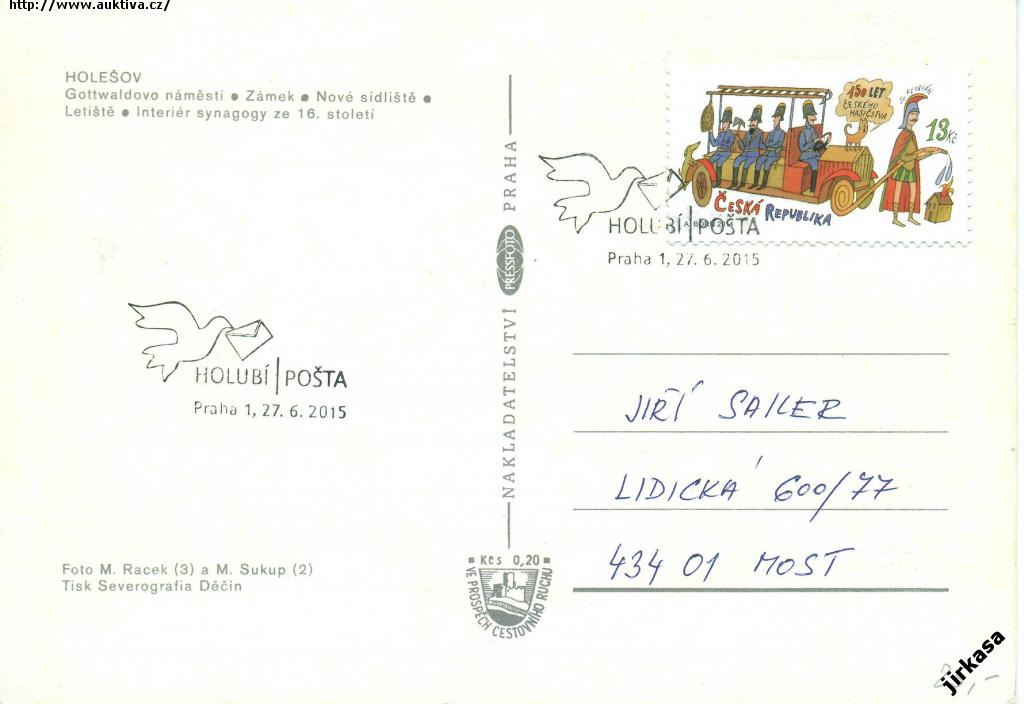 http://www.auktiva.cz/
HOLEŠOV
Gottwaldovo náměstí • Zámek • Nové sídliště •
Letiště • Interiér synagogy ze 16. století
HOLUBÍ POŠTA
Praha 1, 27. 6. 2015
Foto M. Racek (3) a M. Sukup (2)
Tisk Severografia Děčín
NAKLADATELSTVÍ PRESSFOTO PRAHA
Kčs 0,20
VE PROSPĚCH CESTOVNÍHO RUCHU
150 LET
ČESKÉHO
HASIČSTVA
SV. FLORIÁN
13 Kč
ČESKÁ REPUBLIKA
HOLUBÍ POŠTA
Praha 1, 27. 6. 2015
JIŘÍ SAILER
LIDICKÁ 600/77
434 01 MOST
jirkasa